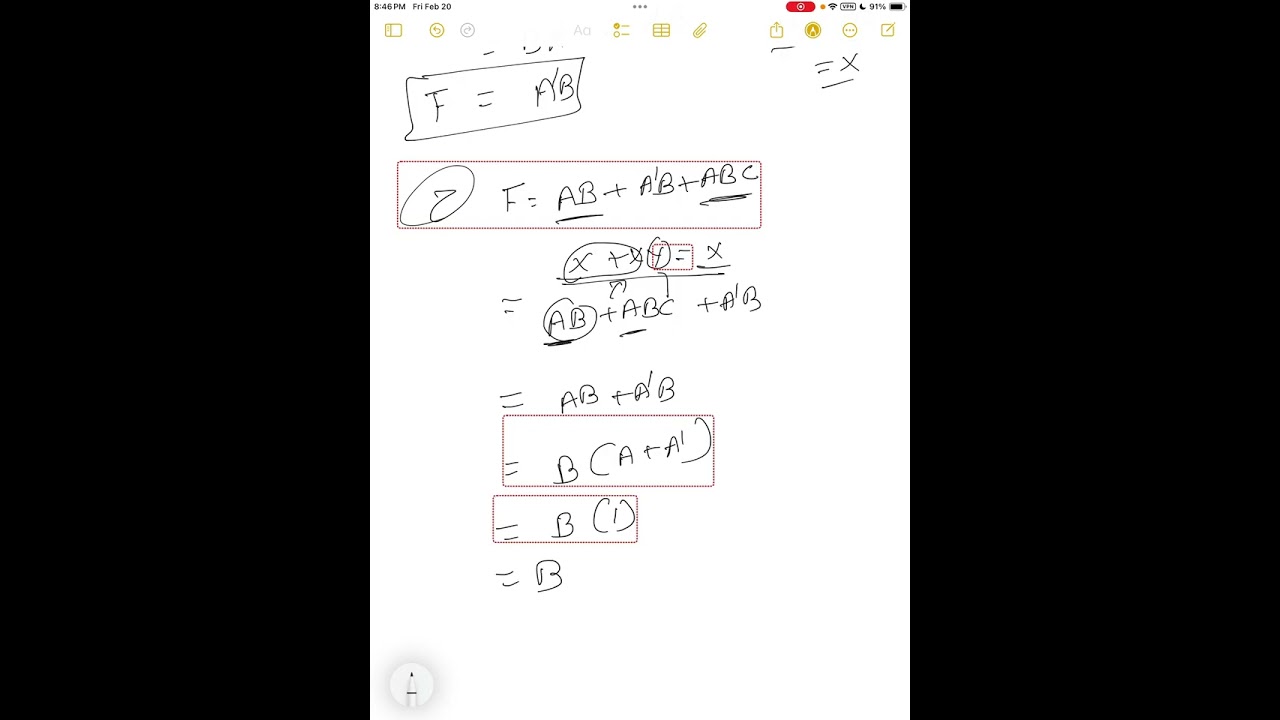 8:46 PM Fri Feb 20
VPN 91%
Aa
= X
F = A'B
7 F = AB + A'B + ABC
X + XY = X
= AB + ABC + A'B
= AB + A'B
= B (A + A')
= B (1)
= B